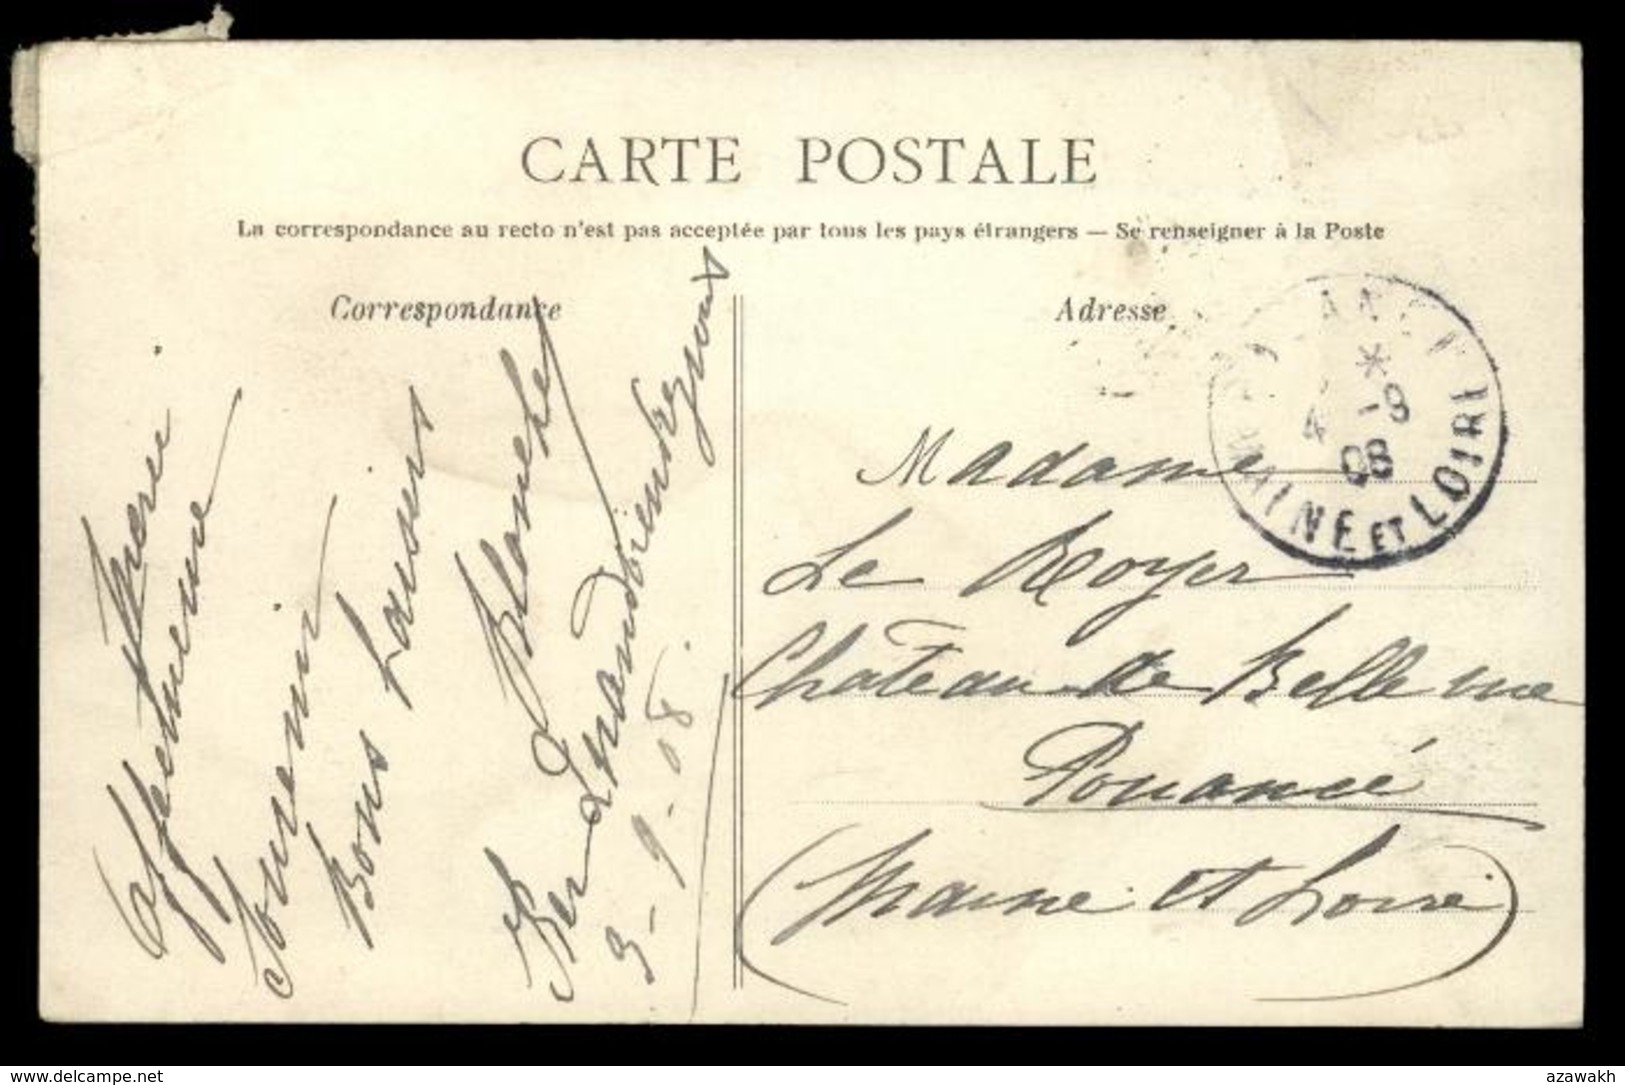 CARTE POSTALE
La correspondance au recto n'est pas acceptée par tous les pays étrangers — Se renseigner à la Poste
Correspondance
Merci
Affectueuse
Souvenir
Bons baisers
3-9-08.
Adresse
Madame
Le Royer
Château de Bellevue
Pouancé
(Maine et Loire)
4 -9
08
MAINE ET LOIRE
www.delcampe.net
azawakh